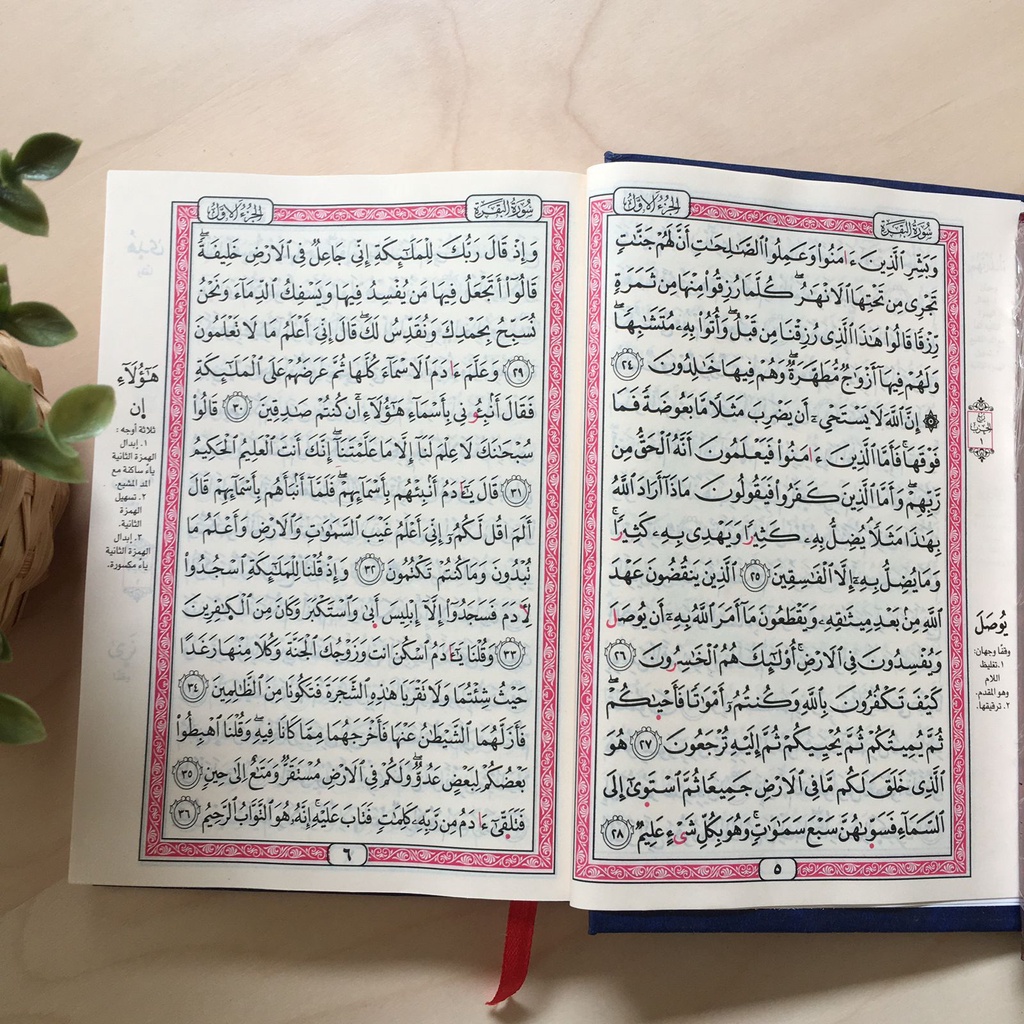 الجُزْءُ الأَوَّلُ
سُورَةُ البَقَرَةِ
وَبَشِّرِ الذِينَ ءَامَنُواْ وَعَمِلُواْ الصَّٰلِحَٰتِ أَنَّ لَهُمْ جَنَّٰتٖ
تَجْرِے مِن تَحْتِهَا اَلَانْهَٰرُ كُلَّمَا رُزِقُواْ مِنْهَا مِن ثَمَرَةٖ
رِّزْقاٗ قَالُواْ هَٰذَا اَلذِے رُزِقْنَا مِن قَبْلُ وَأُتُواْ بِهِۦ مُتَشَٰبِهاٗ
وَلَهُمْ فِيهَا أَزْوَٰجٞ مُّطَهَّرَةٞ وَهُمْ فِيهَا خَٰلِدُونَ ٢٤
۞ إِنَّ اَللَّهَ لَا يَسْتَحْيِۦ أَنْ يَّضْرِبَ مَثَلاٗ مَّا بَعُوضَةٗ فَمَا
فَوْقَهَا فَأَمَّا اَلذِينَ ءَامَنُواْ فَيَعْلَمُونَ أَنَّهُ اُلْحَقُّ مِن
رَّبِّهِمْ وَأَمَّا اَلذِينَ كَفَرُواْ فَيَقُولُونَ مَاذَا أَرَادَ اَللَّهُ
بِهَٰذَا مَثَلاٗ يُضِلُّ بِهِۦ كَثِيراٗ وَيَهْدِے بِهِۦ كَثِيراٗ
وَمَا يُضِلُّ بِهِۦ إِلَّا اَلْفَٰسِقِينَ ٢٥ اَلذِينَ يَنقُضُونَ عَهْدَ
اَللَّهِ مِنۢ بَعْدِ مِيثَٰقِهِۦ وَيَقْطَعُونَ مَا أَمَرَ اَللَّهُ بِهِۦ أَنْ يُّوصَلَ
وَيُفْسِدُونَ فِے اِلَارْضِ أُوْلَٰئِكَ هُمُ اُلْخَٰسِرُونَ ٢٦
كَيْفَ تَكْفُرُونَ بِاللَّهِ وَكُنتُمُۥ أَمْوَٰتاٗ فَأَحْيَٰكُمْ
ثُمَّ يُمِيتُكُمْ ثُمَّ يُحْيِيكُمْ ثُمَّ إِلَيْهِ تُرْجَعُونَ ٢٧ هُوَ
اَلذِے خَلَقَ لَكُم مَّا فِے اِلَارْضِ جَمِيعاٗ ثُمَّ اَسْتَوَىٰ إِلَى
اَلسَّمَاءِ فَسَوَّىٰهُنَّ سَبْعَ سَمَٰوَٰتٖ وَهُوَ بِكُلِّ شَےْءٍ عَلِيمٞ ٢٨
٥
يُوصَلَ
وقفا وجهان:
١. تغليظ
اللام
وهو المقدم.
٢. ترقيقها.
الجُزْءُ الأَوَّلُ
سُورَةُ البَقَرَةِ
وَإِذْ قَالَ رَبُّكَ لِلْمَلَٰئِكَةِ إِنِّے جَاعِلٞ فِے اِلَارْضِ خَلِيفَةٗ
قَالُواْ أَتَجْعَلُ فِيهَا مَنْ يُّفْسِدُ فِيهَا وَيَسْفِكُ اُلدِّمَاءَ وَنَحْنُ
نُسَبِّحُ بِحَمْدِكَ وَنُقَدِّسُ لَكَ قَالَ إِنِّيَ أَعْلَمُ مَا لَا تَعْلَمُونَ
٢٩ وَعَلَّمَ ءَادَمَ اَلَاسْمَاءَ كُلَّهَا ثُمَّ عَرَضَهُمْ عَلَى اَلْمَلَٰئِكَةِ
فَقَالَ أَنۢبِـُٔونِے بِأَسْمَاءِ هَٰؤُلَاءِ ان كُنتُمْ صَٰدِقِينَ ٣٠ قَالُواْ
سُبْحَٰنَكَ لَا عِلْمَ لَنَا إِلَّا مَا عَلَّمْتَنَا إِنَّكَ أَنتَ اَلْعَلِيمُ اُلْحَكِيمُ
٣١ قَالَ يَٰـَٔادَمُ أَنۢبِئْهُم بِأَسْمَائِهِمْ فَلَمَّا أَنۢبَأَهُم بِأَسْمَائِهِمْ قَالَ
أَلَمَ اَقُل لَّكُمُۥ إِنِّيَ أَعْلَمُ غَيْبَ اَلسَّمَٰوَٰتِ وَالَارْضِ وَأَعْلَمُ مَا
تُبْدُونَ وَمَا كُنتُمْ تَكْتُمُونَ ٣٢ وَإِذْ قُلْنَا لِلْمَلَٰئِكَةِ اِسْجُدُواْ
لِأٓدَمَ فَسَجَدُواْ إِلَّا إِبْلِيسَ أَبَىٰ وَاسْتَكْبَرَ وَكَانَ مِنَ اَلْكٰفِرِينَ
٣٣ وَقُلْنَا يَٰـَٔادَمُ اُسْكُنَ اَنتَ وَزَوْجُكَ اَلْجَنَّةَ وَكُلَا مِنْهَا رَغَداً
حَيْثُ شِئْتُمَا وَلَا تَقْرَبَا هَٰذِهِ اِلشَّجَرَةَ فَتَكُونَا مِنَ اَلظَّٰلِمِينَ ٣٤
فَأَزَلَّهُمَا اَلشَّيْطَٰنُ عَنْهَا فَأَخْرَجَهُمَا مِمَّا كَانَا فِيهِ وَقُلْنَا اَهْبِطُواْ
بَعْضُكُمْ لِبَعْضٍ عَدُوّٞ وَلَكُمْ فِے اِلَارْضِ مُسْتَقَرّٞ وَمَتَٰعٌ إِلَىٰ حِينٖ ٣٥
فَتَلَقَّىٰ ءَادَمُ مِن رَّبِّهِۦ كَلِمَٰتٖ فَتَابَ عَلَيْهِ إِنَّهُۥ هُوَ اَلتَّوَّابُ اُلرَّحِيمُ ٣٦
٦
هَٰؤُلَاءِ
إن
ثلاثة أوجه:
١. إبدال
الهمزة الثانية
ياء ساكنة مع
المد المشبع.
٢. تسهيل
الهمزة
الثانية.
٣. إبدال
الهمزة الثانية
ياء مكسورة.